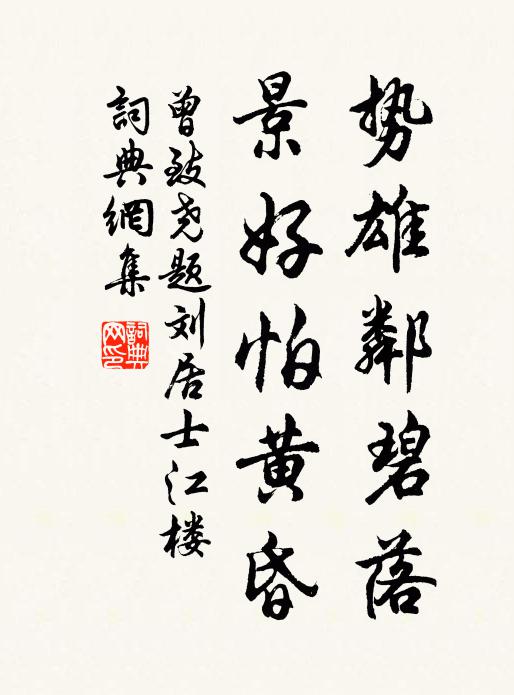 势雄鄰碧落
景好怕黄昏
曾致尧题刘居士江楼
詞典網集
詞典網印